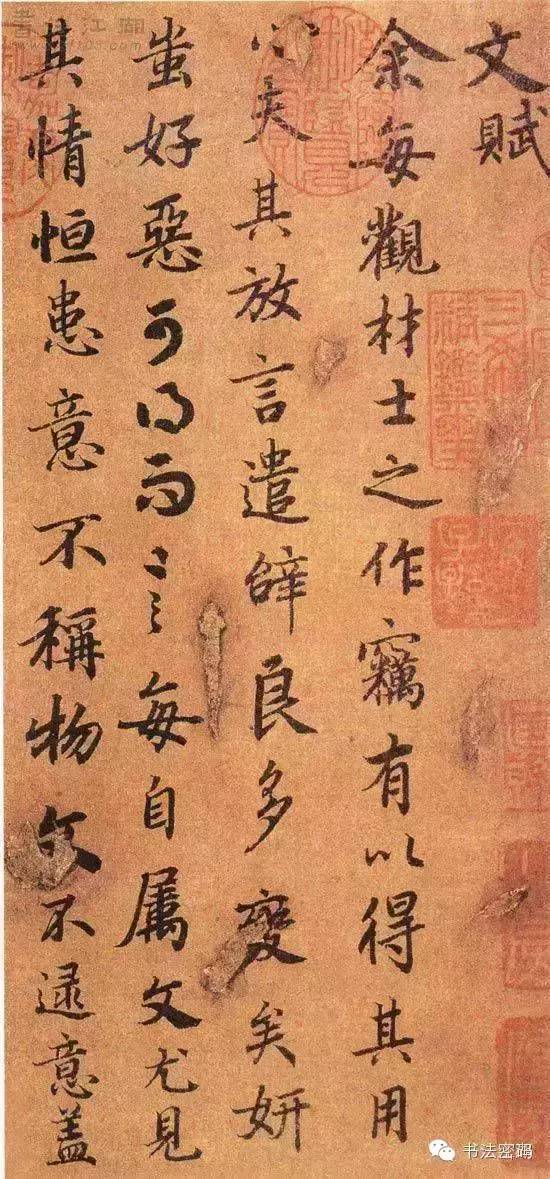 文賦
余每觀材士之作竊有以得其用
心夫其放言遣辭良多變矣妍
蚩好惡可得而言每自属文尤見
其情恒患意不稱物文不逮意盖
三希堂精鑑璽
宜子孫
书法密码